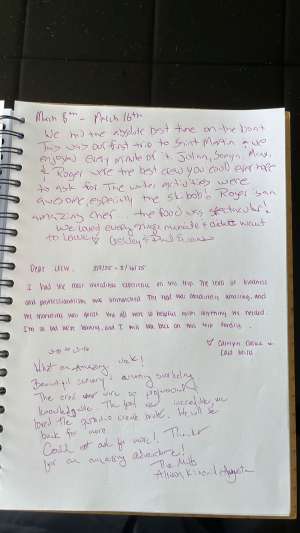 March 8th - March 16th
We had the absolute best time on the boat
This was our first trip to Saint Martin & we
enjoyed every minute of it. Julian, Sonya,
& Roger were the best crew you could ever hope
to ask for. The water activities were
awesome, especially the skibob's. Roger is an
amazing chef... the food was spectacular!
We loved every single minute & didn't want
to leave
Dear Crew,
I had the most wonderful experience on this trip. The level of kindness
and professionalism was unmatched. The food was absolutely amazing, and
the was great. You all were so helpful with anything we needed.
I'm so sad we're leaving, and I will look back on this trip fondly.
What an amazing week!
Beautiful scenery & amazing snorkeling
The crew were so
knowledgeable. The food was incredible. We
loved the We will be
back for more
Could not ask for more! Thanks
for an amazing adventure!
The